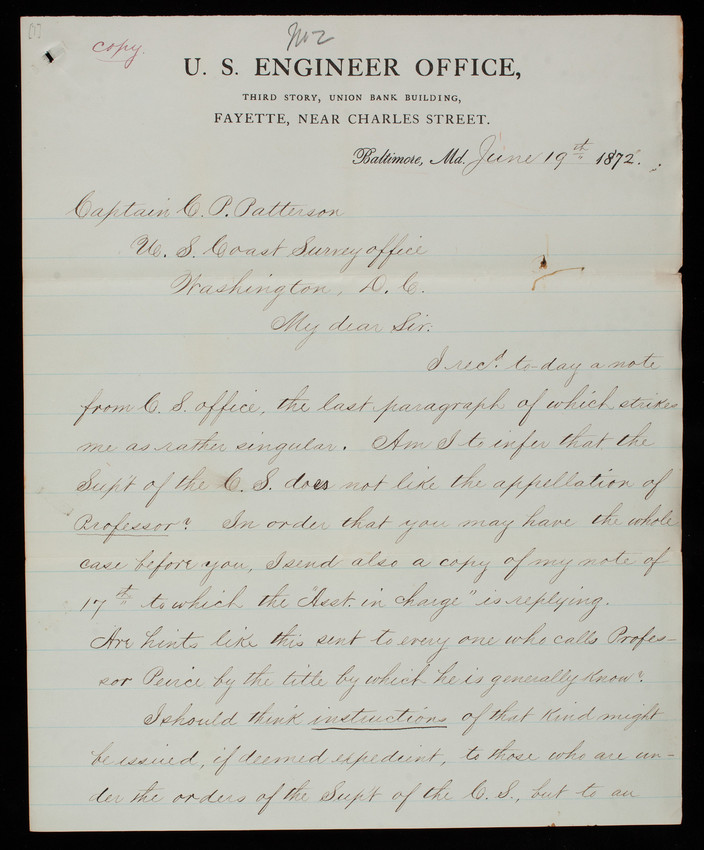 [1]
1
copy.
No 2
U. S. ENGINEER OFFICE,
THIRD STORY, UNION BANK BUILDING,
FAYETTE, NEAR CHARLES STREET.
Baltimore, Md. June 19th 1872.
Captain C. P. Patterson
U. S. Coast Survey office
Washington, D. C.
My dear Sir.
I recd. to-day a note
from C. S. office, the last paragraph of which strikes
me as rather singular. Am I to infer that the
Supt of the C. S. does not like the appellation of
Professor? In order that you may have the whole
case before you, I send also a copy of my note of
17th to which the "Asst. in charge" is replying.
Are hints like this sent to every one who calls Profes-
sor Peirce by the title by which he is generally known?
I should think instructions of that kind might
be issued, if deemed expedient, to those who are un-
der the orders of the Supt of the C. S., but to an